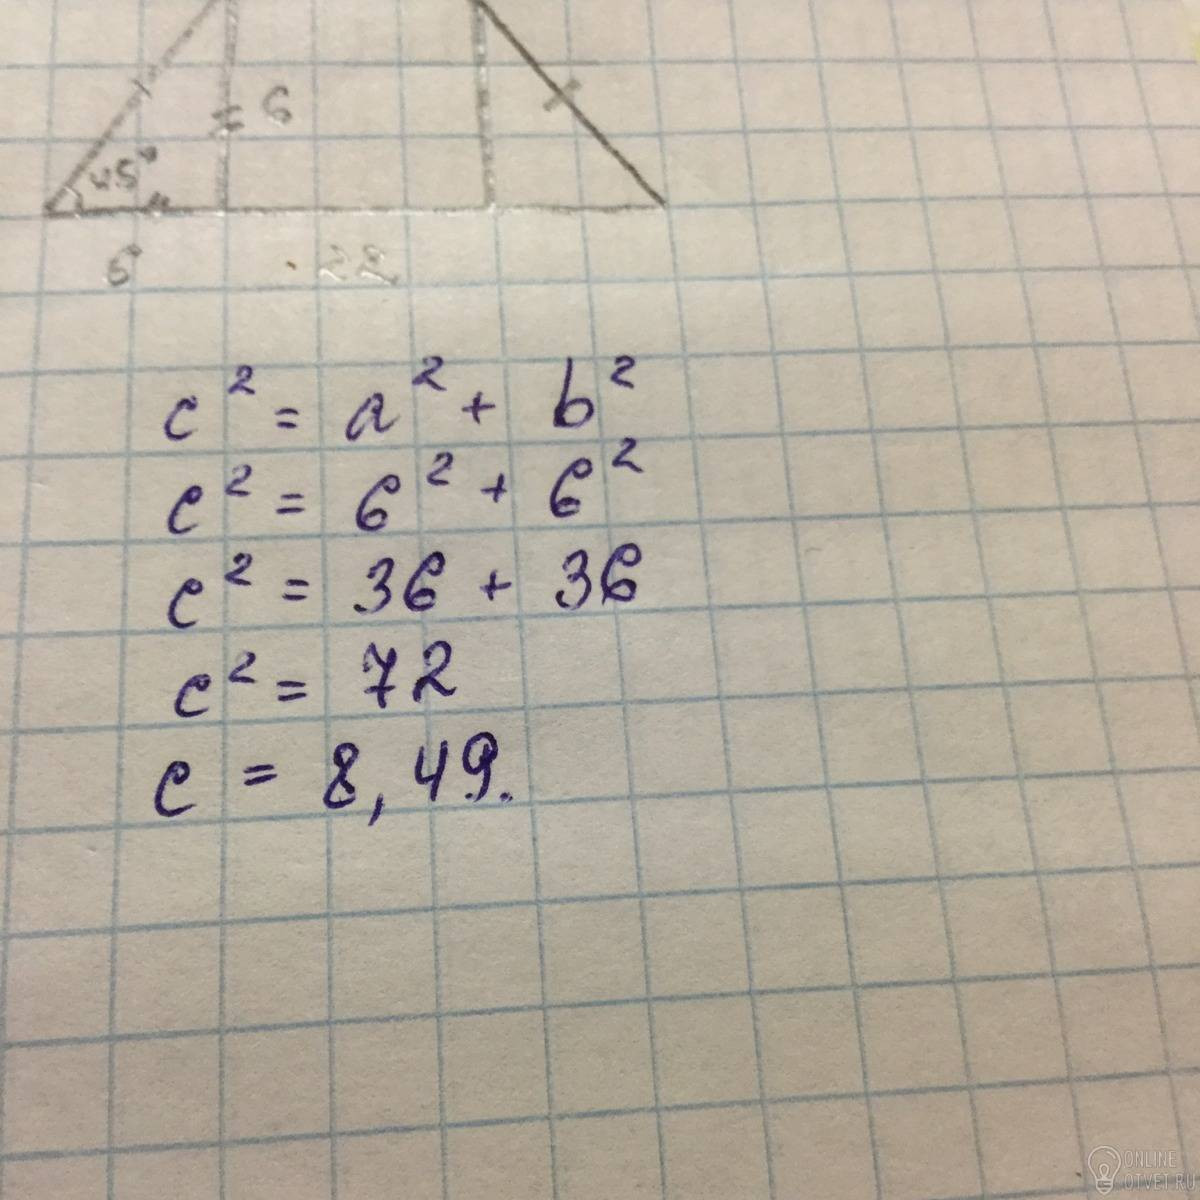 = 6
45°
6
22
c² = a² + b²
c² = 6² + 6²
c² = 36 + 36
c² = 72
c = 8,49.
ONLINE
OTVET.RU